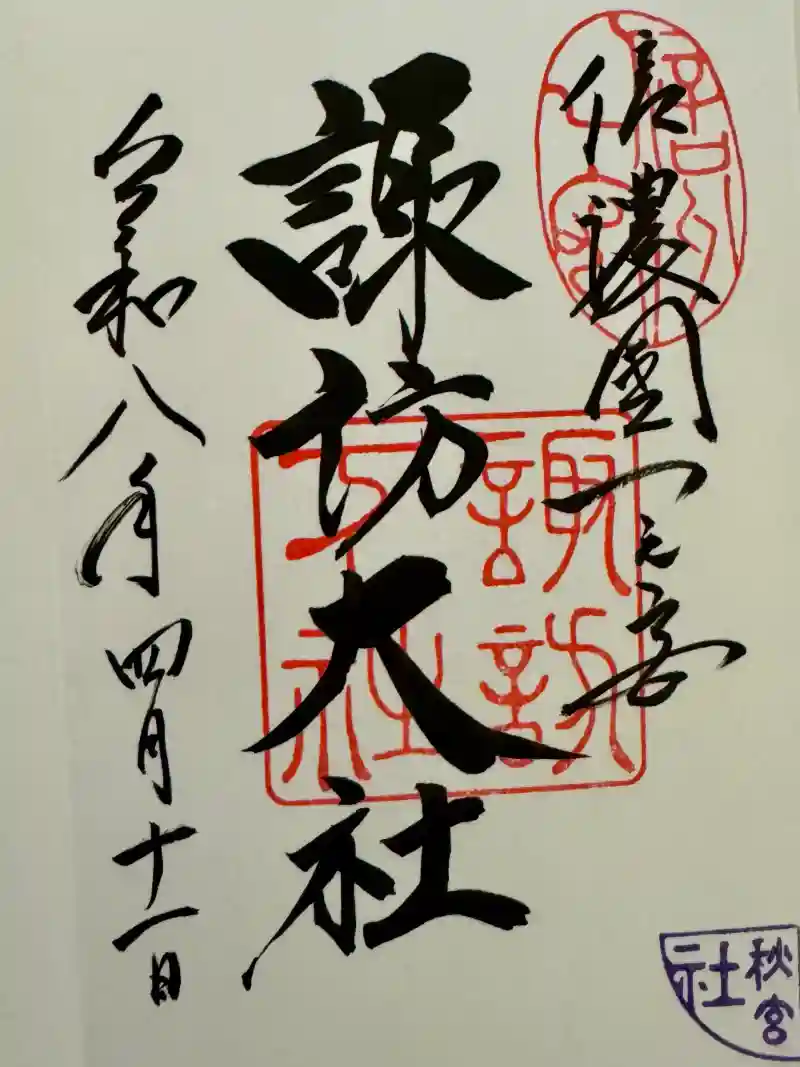 信濃國一之宮
諏訪大社
令和八年四月十一日
諏訪
社
秋宮
社